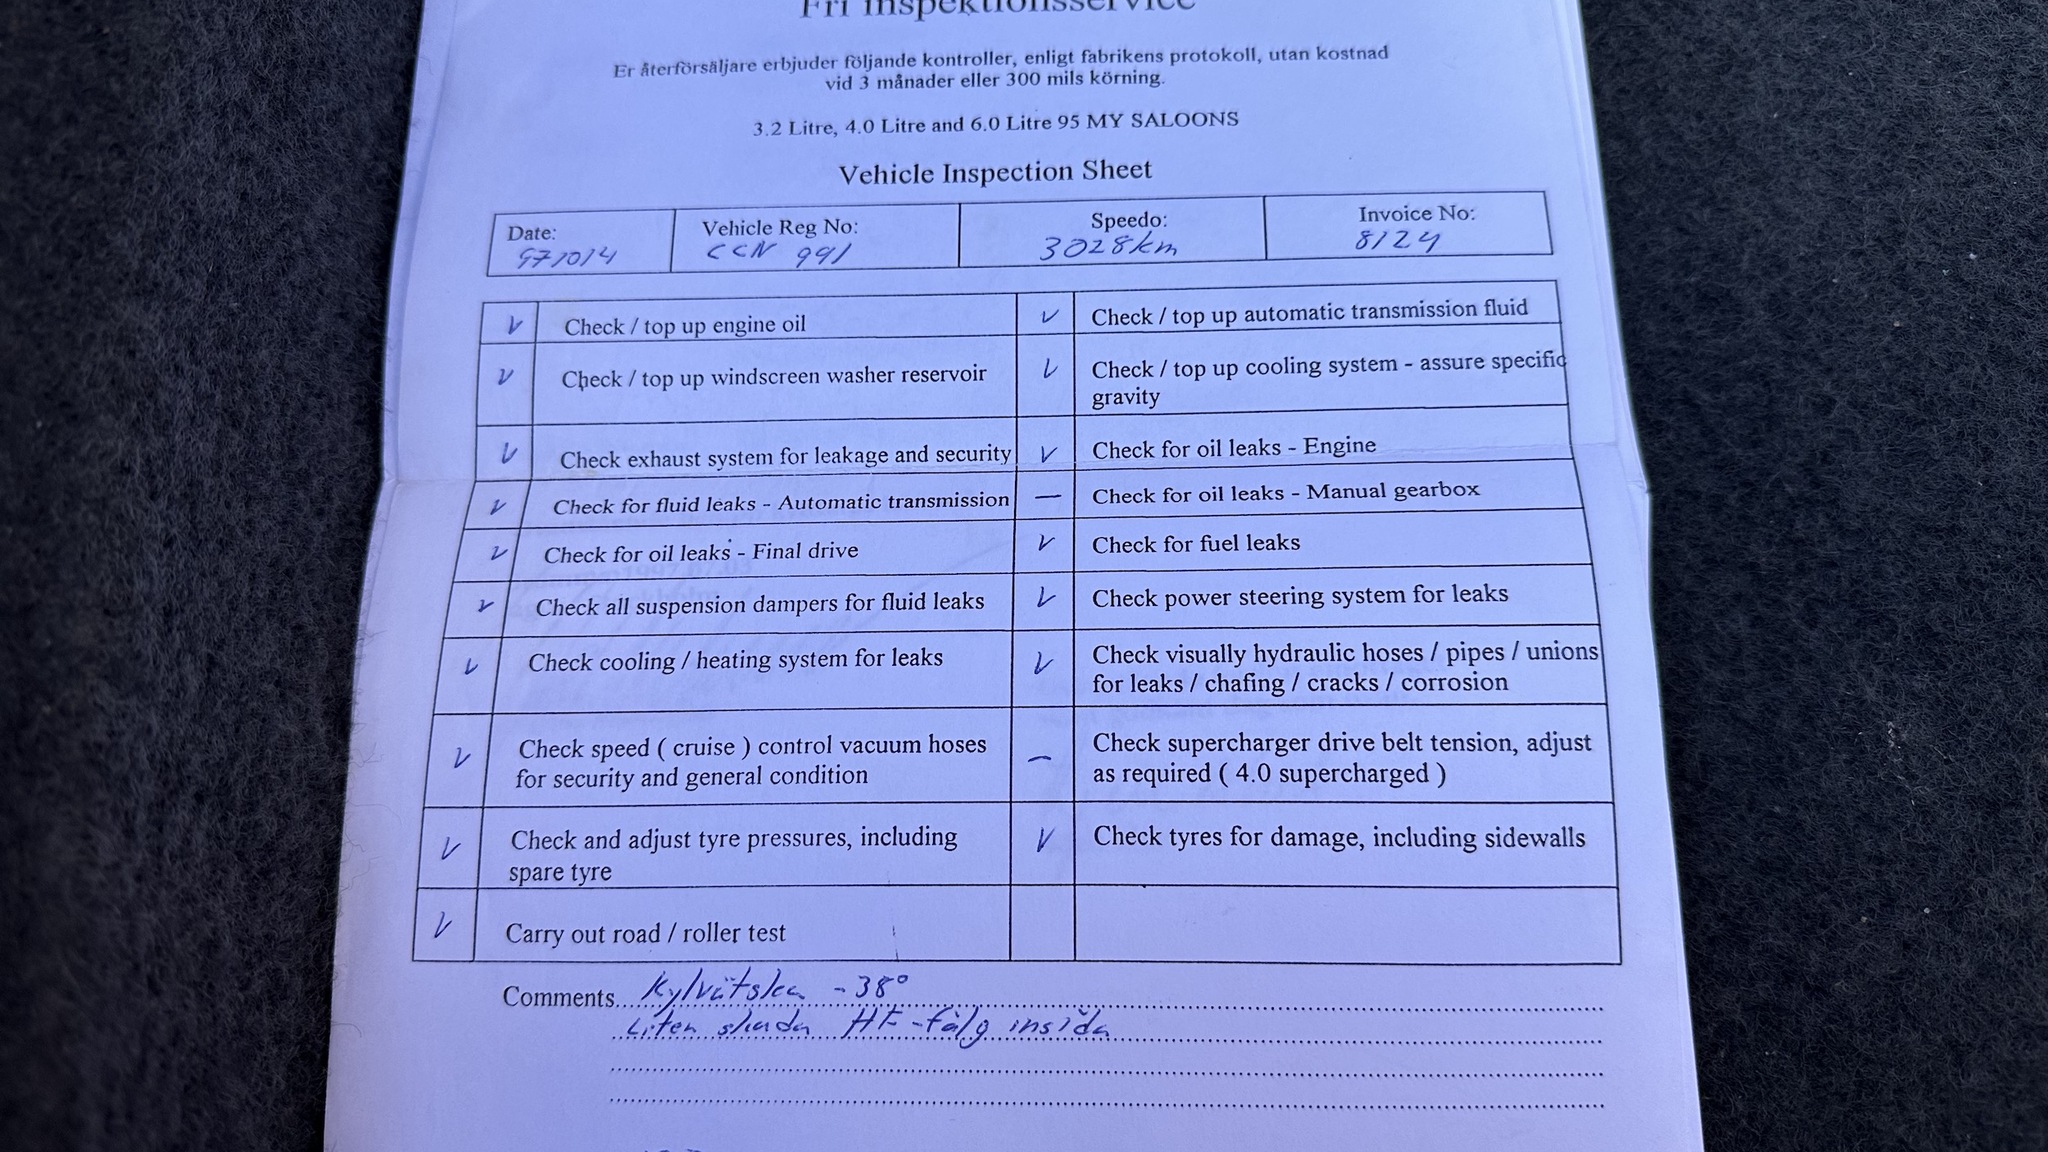 Fri inspektionsservice
Er återförsäljare erbjuder följande kontroller, enligt fabrikens protokoll, utan kostnad
vid 3 månader eller 300 mils körning.
3.2 Litre, 4.0 Litre and 6.0 Litre 95 MY SALOONS
Vehicle Inspection Sheet
Date: Vehicle Reg No: Speedo: Invoice No:
971014 CCN 991 3028km 8124
V Check / top up engine oil V Check / top up automatic transmission fluid
V Check / top up windscreen washer reservoir V Check / top up cooling system - assure specific
gravity
V Check exhaust system for leakage and security V Check for oil leaks - Engine
V Check for fluid leaks - Automatic transmission — Check for oil leaks - Manual gearbox
V Check for oil leaks - Final drive V Check for fuel leaks
V Check all suspension dampers for fluid leaks V Check power steering system for leaks
V Check cooling / heating system for leaks V Check visually hydraulic hoses / pipes / unions
for leaks / chafing / cracks / corrosion
V Check speed ( cruise ) control vacuum hoses
for security and general condition — Check supercharger drive belt tension, adjust
as required ( 4.0 supercharged )
V Check and adjust tyre pressures, including
spare tyre V Check tyres for damage, including sidewalls
V Carry out road / roller test
Comments Kylvätska -38°
Liten skada HF-fälg insida